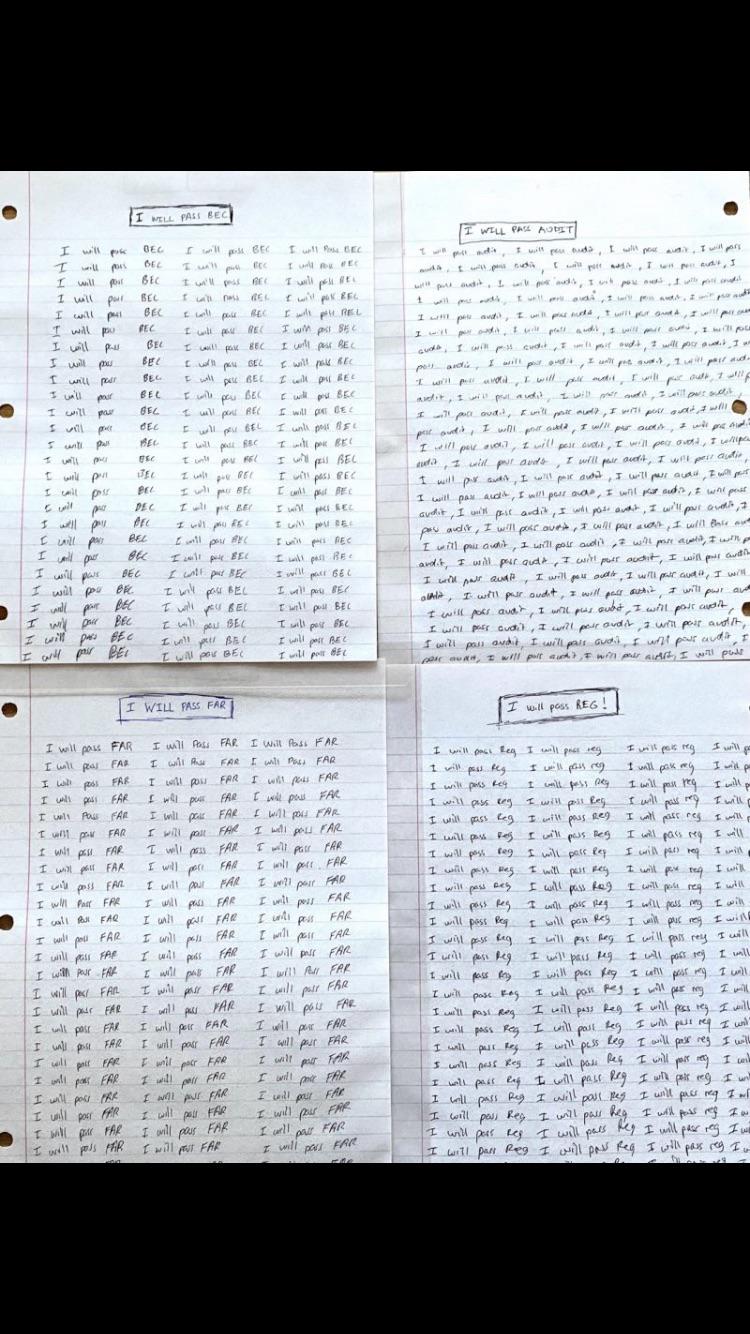 I WILL PASS BEC
I will pass BEC I will pass BEC I will Pass BEC
I will pass BEC I will pass BEC I will Pass BEC
I will pass BEC I will pass BEC I will pass BEC
I will pass BEC I will pass BEC I will pass BEC
I will pass BEC I will pass BEC I will pass BEC
I will pass BEC I will pass BEC I will pass BEC
I will pass BEC I will pass BEC I will pass BEC
I will pass BEC I will pass BEC I will pass BEC
I will pass BEC I will pass BEC I will pass BEC
I will pass BEC I will pass BEC I will pass BEC
I will pass BEC I will pass BEC I will pass BEC
I will pass BEC I will pass BEC I will pass BEC
I will pass BEC I will pass BEC I will pass BEC
I will pass BEC I will pass BEC I will pass BEC
I will pass BEC I will pass BEC I will pass BEC
I will pass BEC I will pass BEC I will pass BEC
I will pass BEC I will pass BEC I will pass BEC
I will pass BEC I will pass BEC I will pass BEC
I will pass BEC I will pass BEC I will pass BEC
I will pass BEC I will pass BEC I will pass BEC
I will pass BEC I will pass BEC I will pass BEC
I will pass BEC I will pass BEC I will pass BEC
I will pass BEC I will pass BEC I will pass BEC
I will pass BEC I will pass BEC I will pass BEC
I will pass BEC I will pass BEC I will pass BEC
I will pass BEC I will pass BEC I will pass BEC
I WILL PASS AUDIT
I will pass audit, I will pass audit, I will pass audit, I will pass
audit, I will pass audit, I will pass audit, I will pass audit, I
will pass audit, I will pass audit, I will pass audit, I will pass
I will pass audit, I will pass audit, I will pass audit, I will pass
I will pass audit, I will pass audit, I will pass audit, I will pass
I will pass audit, I will pass audit, I will pass audit, I will pass
audit, I will pass audit, I will pass audit, I will pass audit, I
pass audit, I will pass audit, I will pass audit, I will pass
I will pass audit, I will pass audit, I will pass audit, I will
audit, I will pass audit, I will pass audit, I will pass
I will pass audit, I will pass audit, I will pass audit, I will
pass audit, I will pass audit, I will pass audit, I will pass
I will pass audit, I will pass audit, I will pass audit, I will pass
audit, I will pass audit, I will pass audit, I will pass audit
I will pass audit, I will pass audit, I will pass audit, I will pass
I will pass audit, I will pass audit, I will pass audit, I will pass
audit, I will pass audit, I will pass audit, I will pass audit, I
pass audit, I will pass audit, I will pass audit, I will Pass
I will pass audit, I will pass audit, I will pass audit, I will
audit, I will pass audit, I will pass audit, I will pass
I will pass audit, I will pass audit, I will pass audit, I will
audit, I will pass audit, I will pass audit, I will pass
I will pass audit, I will pass audit, I will pass audit
I will pass audit, I will pass audit, I will pass audit
I will pass audit, I will pass audit, I will pass audit, I
pass audit, I will pass audit, I will pass audit, I will pass
I WILL PASS FAR
I will pass FAR I will Pass FAR I will Pass FAR
I will pass FAR I will Pass FAR I will Pass FAR
I will pass FAR I will pass FAR I will pass FAR
I will pass FAR I will pass FAR I will pass FAR
I will Pass FAR I will pass FAR I will pass FAR
I will pass FAR I will pass FAR I will pass FAR
I will pass FAR I will pass FAR I will pass FAR
I will pass FAR I will pass FAR I will pass FAR
I will pass FAR I will pass FAR I will pass FAR
I will Pass FAR I will pass FAR I will pass FAR
I will Pass FAR I will pass FAR I will pass FAR
I will pass FAR I will pass FAR I will pass FAR
I will pass FAR I will pass FAR I will pass FAR
I will pass FAR I will pass FAR I will Pass FAR
I will pass FAR I will pass FAR I will pass FAR
I will pass FAR I will pass FAR I will pass FAR
I will pass FAR I will pass FAR I will pass FAR
I will pass FAR I will pass FAR I will pass FAR
I will pass FAR I will pass FAR I will pass FAR
I will pass FAR I will pass FAR I will pass FAR
I will pass FAR I will pass FAR I will pass FAR
I will pass FAR I will pass FAR I will pass FAR
I will pass FAR I will pass FAR I will pass FAR
I will pass FAR I will pass FAR I will pass FAR
I will pass REG!
I will pass Reg I will pass reg I will pass reg I will
I will pass Reg I will pass reg I will pass reg I will
I will pass Reg I will pass Reg I will pass reg I will
I will pass Reg I will pass Reg I will pass reg I will
I will pass Reg I will pass Reg I will pass reg I will
I will pass Reg I will pass Reg I will pass reg I will
I will pass Reg I will pass Reg I will pass reg I will
I will pass Reg I will pass Reg I will pass reg I will
I will pass Reg I will pass Reg I will pass reg I will
I will pass Reg I will pass Reg I will pass reg I will
I will pass Reg I will pass Reg I will pass reg I will
I will pass Reg I will pass Reg I will pass reg I will
I will pass Reg I will pass Reg I will pass reg I will
I will pass Reg I will pass Reg I will pass reg I will
I will pass Reg I will pass Reg I will pass reg I will
I will pass Reg I will pass Reg I will pass reg I will
I will pass Reg I will pass Reg I will pass reg I will
I will pass Reg I will pass Reg I will pass reg I will
I will pass Reg I will pass Reg I will pass reg I will
I will pass Reg I will pass Reg I will pass reg I will
I will pass Reg I will pass Reg I will pass reg I
I will pass Reg I will pass Reg I will pass reg I
I will pass Reg I will pass Reg I will pass reg I
I will pass Reg I will pass Reg I will pass reg I